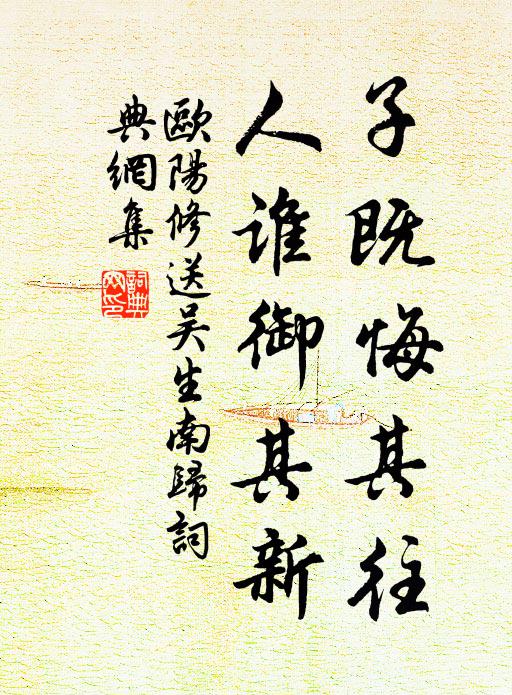 子既悔其往
人谁御其新
歐陽修送吴生南歸詞
典網集
詞典
网印